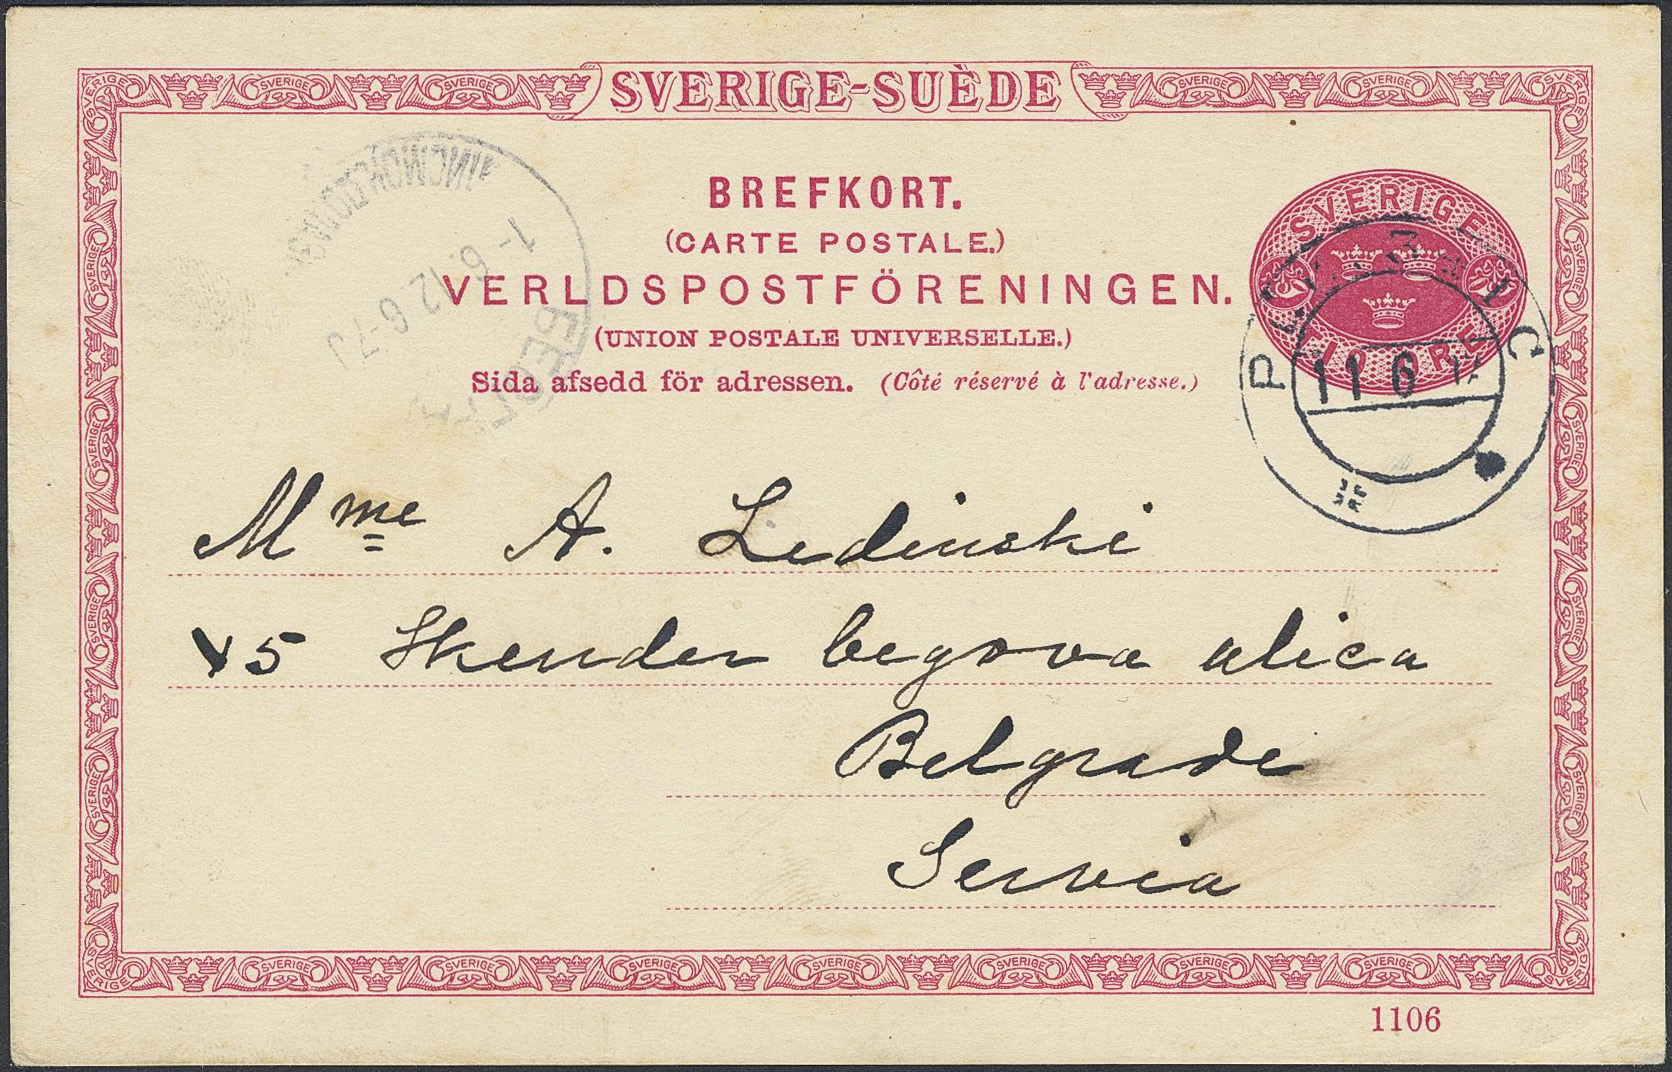 SVERIGE-SUÈDE
BREFKORT.
(CARTE POSTALE.)
VERLDSPOSTFÖRENINGEN.
(UNION POSTALE UNIVERSELLE.)
Sida afsedd för adressen. (Côté réservé à l'adresse.)
SVERIGE
TIO ÖRE
11 6
1-6.12 6-7
Mme A. Ledinski
15 Skender begova ulica
Belgrade
Servia
1106